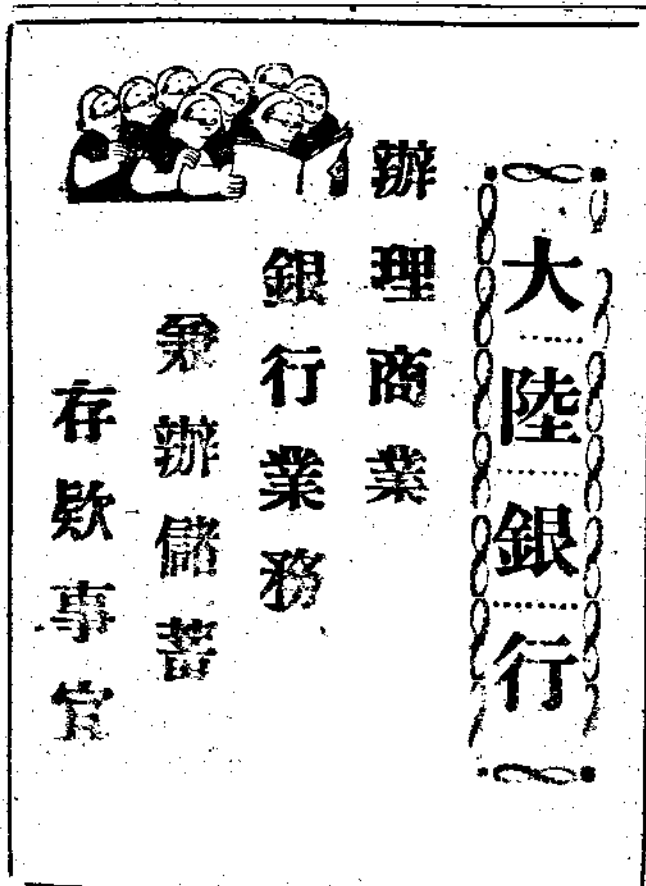 大陸銀行
辦理商業
銀行業務
兼辦儲蓄
存款事宜